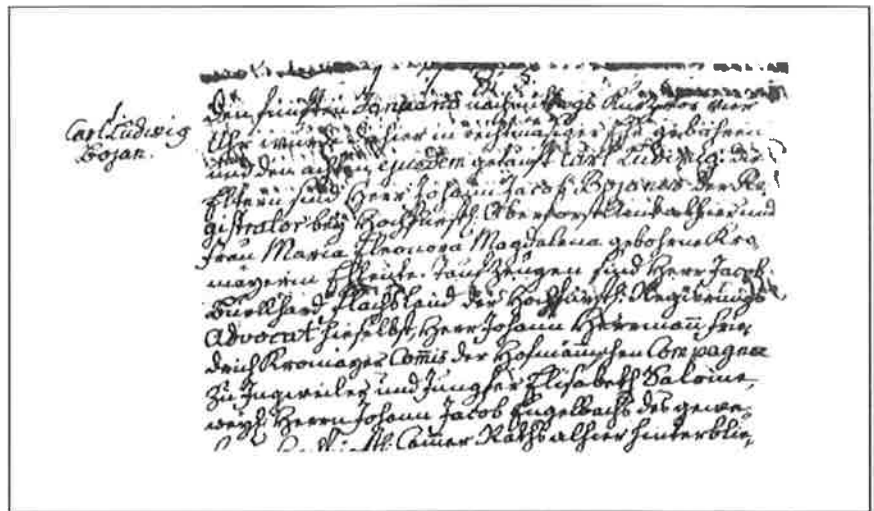 Carl Ludwig
Bojan.
Den fünften Januarii nachmittags kurtz vor vier
Uhr wurde hier in rechtmäsiger Ehe gebohren
und den achten ejusdem getauft Carl Ludwig. die
Eltern sind Herr Johann Jacob Bojanus der Re-
gistrator bey Hochfürstl. Oberforst Amt alhier und
Frau Maria Eleonora Magdalena gebohrne Kro-
mayerin Eheleute. Taufzeugen sind Herr Jacob
Burkhard Flachsland der Hochfürstl. Regierungs
Advocat hieselbst, Herr Johann Herrmann Frie-
drich Kromayer Com̅is der Hofmännischen Compagnie
zu Ingweiler und Jungfer Elisabeth Salome,
weyl. Herrn Johann Jacob Engelbachs des gewe-
Cam̅er Raths alhier hinterblie-